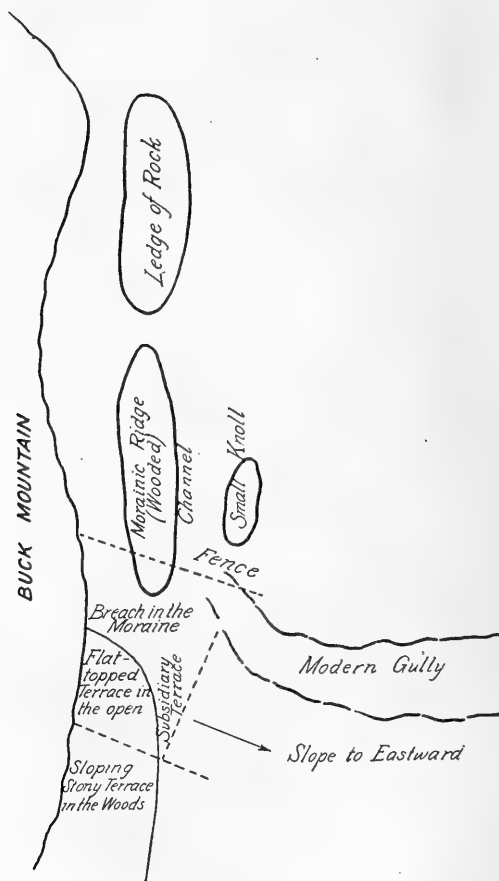 Ledge of Rock
BUCK MOUNTAIN
Morainic Ridge
(Wooded)
Channel
Small Knoll
Fence
Breach in the
Moraine
Flat-
topped
Terrace in
the open
Subsidiary
Terrace
Modern Gully
Slope to Eastward
Sloping
Stony Terrace
in the Woods